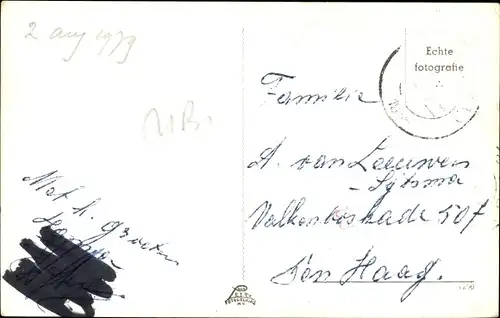 2 aug 1979
Echte
fotografie
Familie
A. van Leeuwen
- Sytsma
Valkenboskade 507
Den Haag.
Met h. groeten